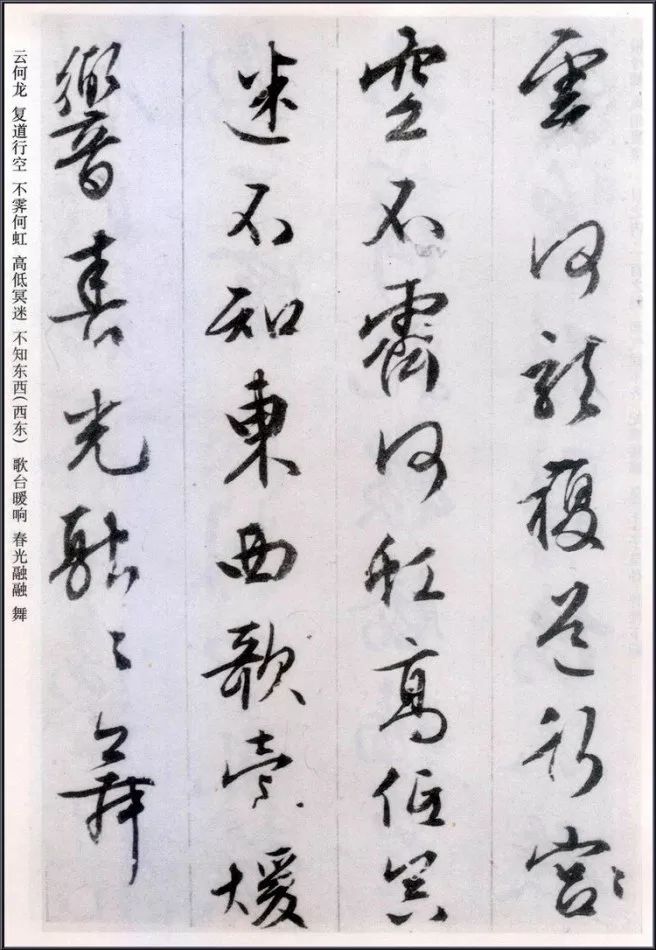 雲何龍複道行宮
空不霽何虹高低冥
迷不知東西歌臺煖
響春光融〻舞
云何龙 复道行空 不霁何虹 高低冥迷 不知东西(西东) 歌台暖响 春光融融 舞